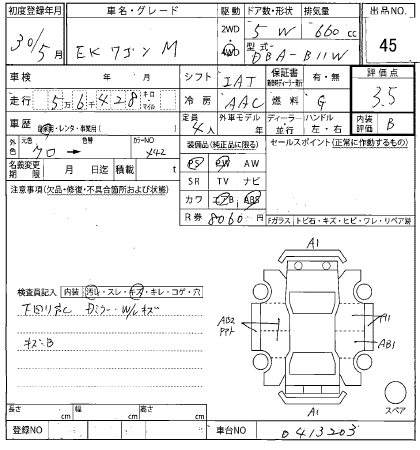 初度登録年月 車名・グレード 駆動 ドア数・形状 排気量 出品No.
30/5月 EKワゴン M 2WD 4WD 5 W 660 cc 45
型式 DBA-B11W
車検 年 月 シフト IAT 保証書 有・無 評価点
走行 5万6千428 キロ マイル 冷房 AAC 燃料 G 3.5
車歴 自家用・レンタ・事業用( ) 定員 4人 外車モデル 年 ディーラー・並行 ハンドル 左・右 内装評価 B
外色 元色 クロ → 色替 カラーNO X42 装備品(純正品に限る) セールスポイント(正常に作動するもの)
名義変更期限 月 日迄 積載 t PS PW AW
注意事項(欠品・修復・不具合箇所および状態) SR TV ナビ
カワ エアB ABS
R券 8060円
Fガラス トビ石・キズ・ヒビ・ワレ・リペア跡
A1
検査員記入 内装 汚れ・スレ・キズ・キレ・コゲ・穴
下回りサビ Dミラー W/レ キズ
AB2 A1
キズB
AB1
A1
スペア
長さ cm 幅 cm 高さ cm
登録NO 車台NO 0413203